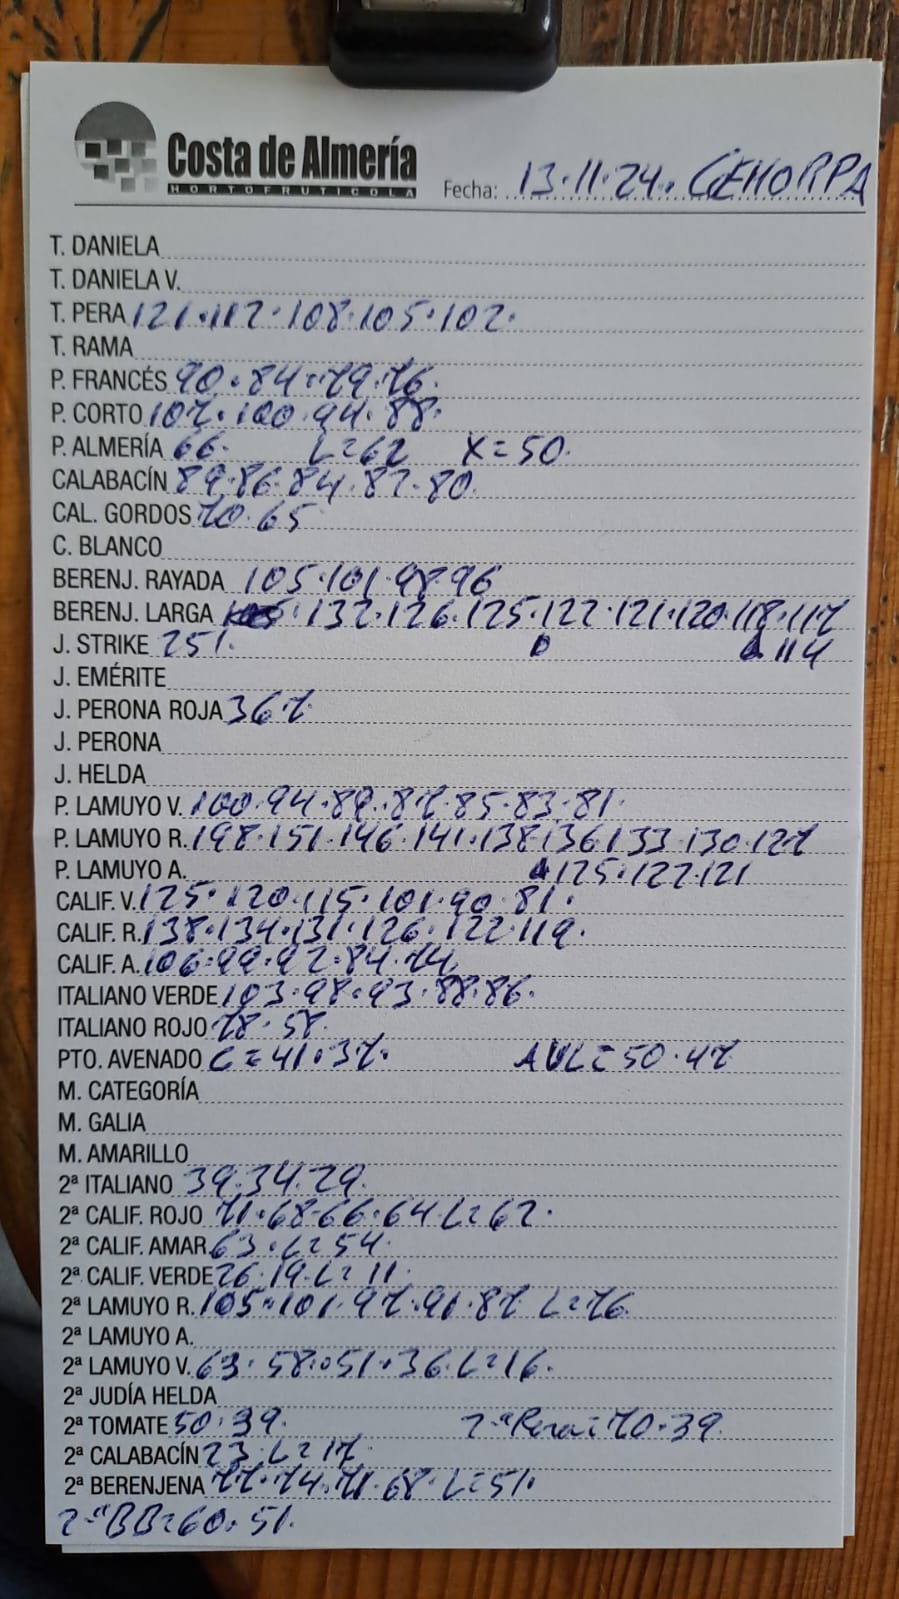 Costa de Almería
HORTOFRUTICOLA
Fecha: 13·11·24. CEHORPA
T. DANIELA
T. DANIELA V.
T. PERA 121·112·108·105·102·
T. RAMA
P. FRANCÉS 90·84·79·76.
P. CORTO 107·100·94·88·
P. ALMERÍA 66. L=62 X=50.
CALABACÍN 89·86·84·82·80.
CAL. GORDOS 70·65
C. BLANCO
BERENJ. RAYADA 105·101·98·96
BERENJ. LARGA 132·126·125·122·121·120·118·117
J. STRIKE 251. 114
J. EMÉRITE
J. PERONA ROJA 367.
J. PERONA
J. HELDA
P. LAMUYO V. 100·94·89·87·85·83·81.
P. LAMUYO R. 198·151·146·141·138·136·133·130·127
P. LAMUYO A. 125·122·121
CALIF. V. 125·120·115·101·90·81.
CALIF. R. 138·134·131·126·122·119.
CALIF. A. 106·99·92·84·74
ITALIANO VERDE 103·98·93·88·86.
ITALIANO ROJO 78·58.
PTO. AVENADO C=41·37. AVL=50·47
M. CATEGORÍA
M. GALIA
M. AMARILLO
2ª ITALIANO 39·34·29.
2ª CALIF. ROJO 71·68·66·64 L=62.
2ª CALIF. AMAR. 63·L=54.
2ª CALIF. VERDE 26·19·L=11.
2ª LAMUYO R. 105·101·97·91·87 L=76
2ª LAMUYO A.
2ª LAMUYO V. 63·58·51·36·L=16.
2ª JUDÍA HELDA
2ª TOMATE 50·39. 2ªPera=70·39.
2ª CALABACÍN 23·L=17.
2ª BERENJENA 77·74·71·68·L=51.
2ªBB=60·51.